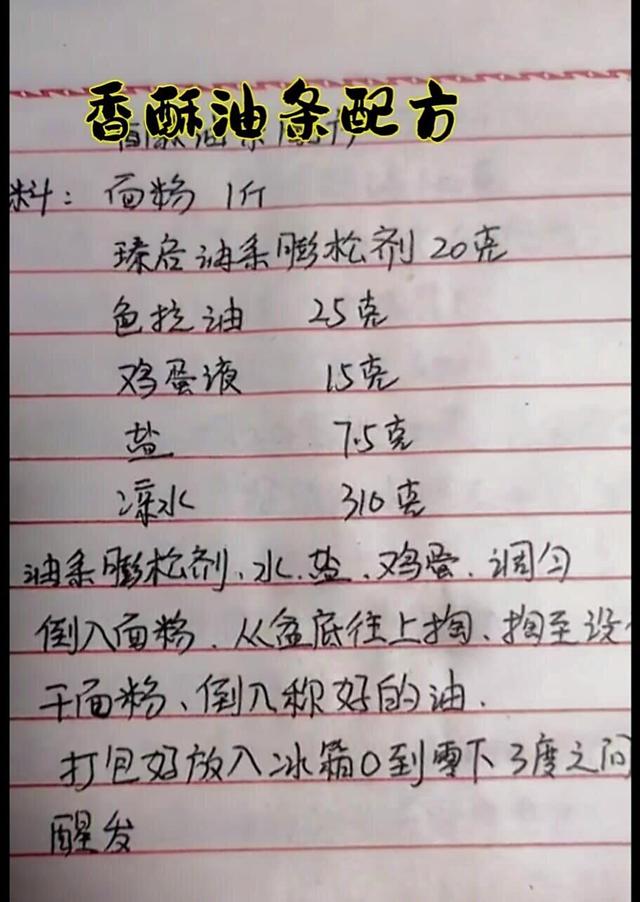 香酥油条配方
料: 面粉 1斤
油条膨松剂 20克
色拉油 25克
鸡蛋液 15克
盐 7.5克
凉水 310克
油条膨松剂、水、盐、鸡蛋、调匀
倒入面粉、从盆底往上掏、掏至没
干面粉、倒入称好的油.
打包好放入冰箱0到零下3度之间
醒发